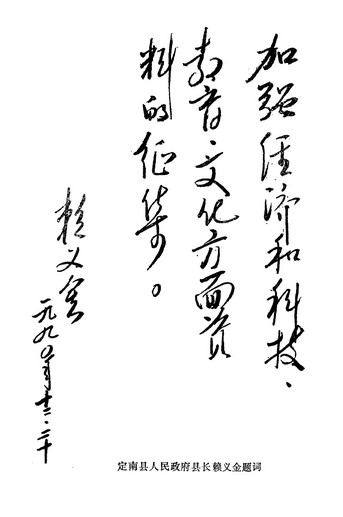 加强经济和科技、
教育、文化方面资
料的征集。
赖义金
一九九〇年十二.二十
定南县人民政府县长赖义金题词